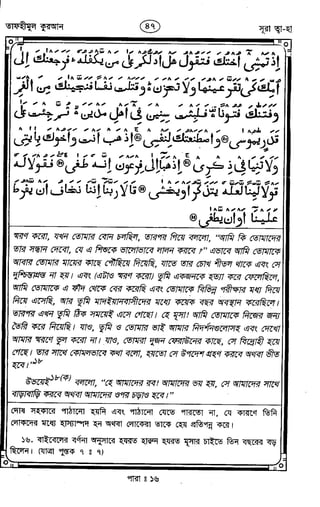 তাফহীমুল কুরআন
৪৭
সূরা ত্বা-হা
إِذْ تَمْشِي أُخْتُكَ فَتَقُولُ هَلْ أَدُلُّكُمْ عَلَىٰ مَن يَكْفُلُهُ فَرَجَعْنَاكَ إِلَىٰ
أُمِّكَ كَيْ تَقَرَّ عَيْنُهَا وَلَا تَحْزَنَ وَقَتَلْتَ نَفْسًا فَنَجَّيْنَاكَ مِنَ الْغَمِّ
وَفَتَنَّاكَ فُتُونًا فَلَبِثْتَ سِنِينَ فِي أَهْلِ مَدْيَنَ ثُمَّ جِئْتَ عَلَىٰ
قَدَرٍ يَا مُوسَىٰ وَاصْطَنَعْتُكَ لِنَفْسِي اذْهَبْ أَنتَ وَأَخُوكَ بِآيَاتِي
وَلَا تَنِيَا فِي ذِكْرِي اذْهَبَا إِلَىٰ فِرْعَوْنَ إِنَّهُ طَغَىٰ فَقُولَا لَهُ
قَوْلًا لَّيِّنًا لَّعَلَّهُ يَتَذَكَّرُ أَوْ يَخْشَىٰ قَالَا رَبَّنَا إِنَّنَا نَخَافُ أَن يَفْرُطَ
عَلَيْنَا أَوْ أَن يَطْغَىٰ
স্মরণ করো, যখন তোমার বোন চলছিল, তারপর গিয়ে বললো, "আমি কি তোমাদের
তার সন্ধান দেবো, যে এ শিশুকে ভালোভাবে লালন করবে?" এভাবে আমি তোমাকে
আবার তোমার মায়ের কাছে পৌঁছিয়ে দিয়েছি, যাতে তার চোখ শীতল থাকে এবং সে
দুশ্চিন্তাগ্রস্ত না হয়। এবং (এটাও স্মরণ করো) তুমি একজনকে হত্যা করে ফেলেছিলে,
আমি তোমাকে এ ফাঁদ থেকে বের করেছি এবং তোমাকে বিভিন্ন পরীক্ষার মধ্য দিয়ে
নিয়ে এসেছি, আর তুমি মাদ্‌ইয়ানবাসীদের মধ্যে কয়েক বছর অবস্থান করেছিলে।
তারপর এখন তুমি ঠিক সময়েই এসে গেছো। হে মূসা! আমি তোমাকে নিজের জন্য
তৈরি করে নিয়েছি। যাও, তুমি ও তোমার ভাই আমার নিদর্শনগুলোসহ এবং দেখো
আমার স্মরণে ভুল করো না। যাও, তোমরা দু'জন ফেরাউনের কাছে, সে বিদ্রোহী হয়ে
গেছে। তার সাথে কোমলভাবে কথা বলো, হয়তো সে উপদেশ গ্রহণ করবে অথবা ভীত
হবে।"১৮
উভয়েই১৮(ক) বললো, "হে আমাদের রব! আমাদের ভয় হয়, সে আমাদের সাথে
বাড়াবাড়ি করবে অথবা আমাদের ওপর চড়াও হবে।"
দোষ সহকারে পাঠানো হয়নি এবং পাঠানো যেতে পারতো না, যে কারণে তিনি
লোকদের মধ্যে হাস্যাস্পদ হন অথবা লোকেরা তাকে হেয় প্রতিপন্ন করে।
১৬. বাইবেলের বর্ণনা অনুসারে হযরত হারুন হযরত মূসার চাইতে তিন বছরের বড়
ছিলেন। (যাত্রা পুস্তক ৭ : ৭)
পারা : ১৬